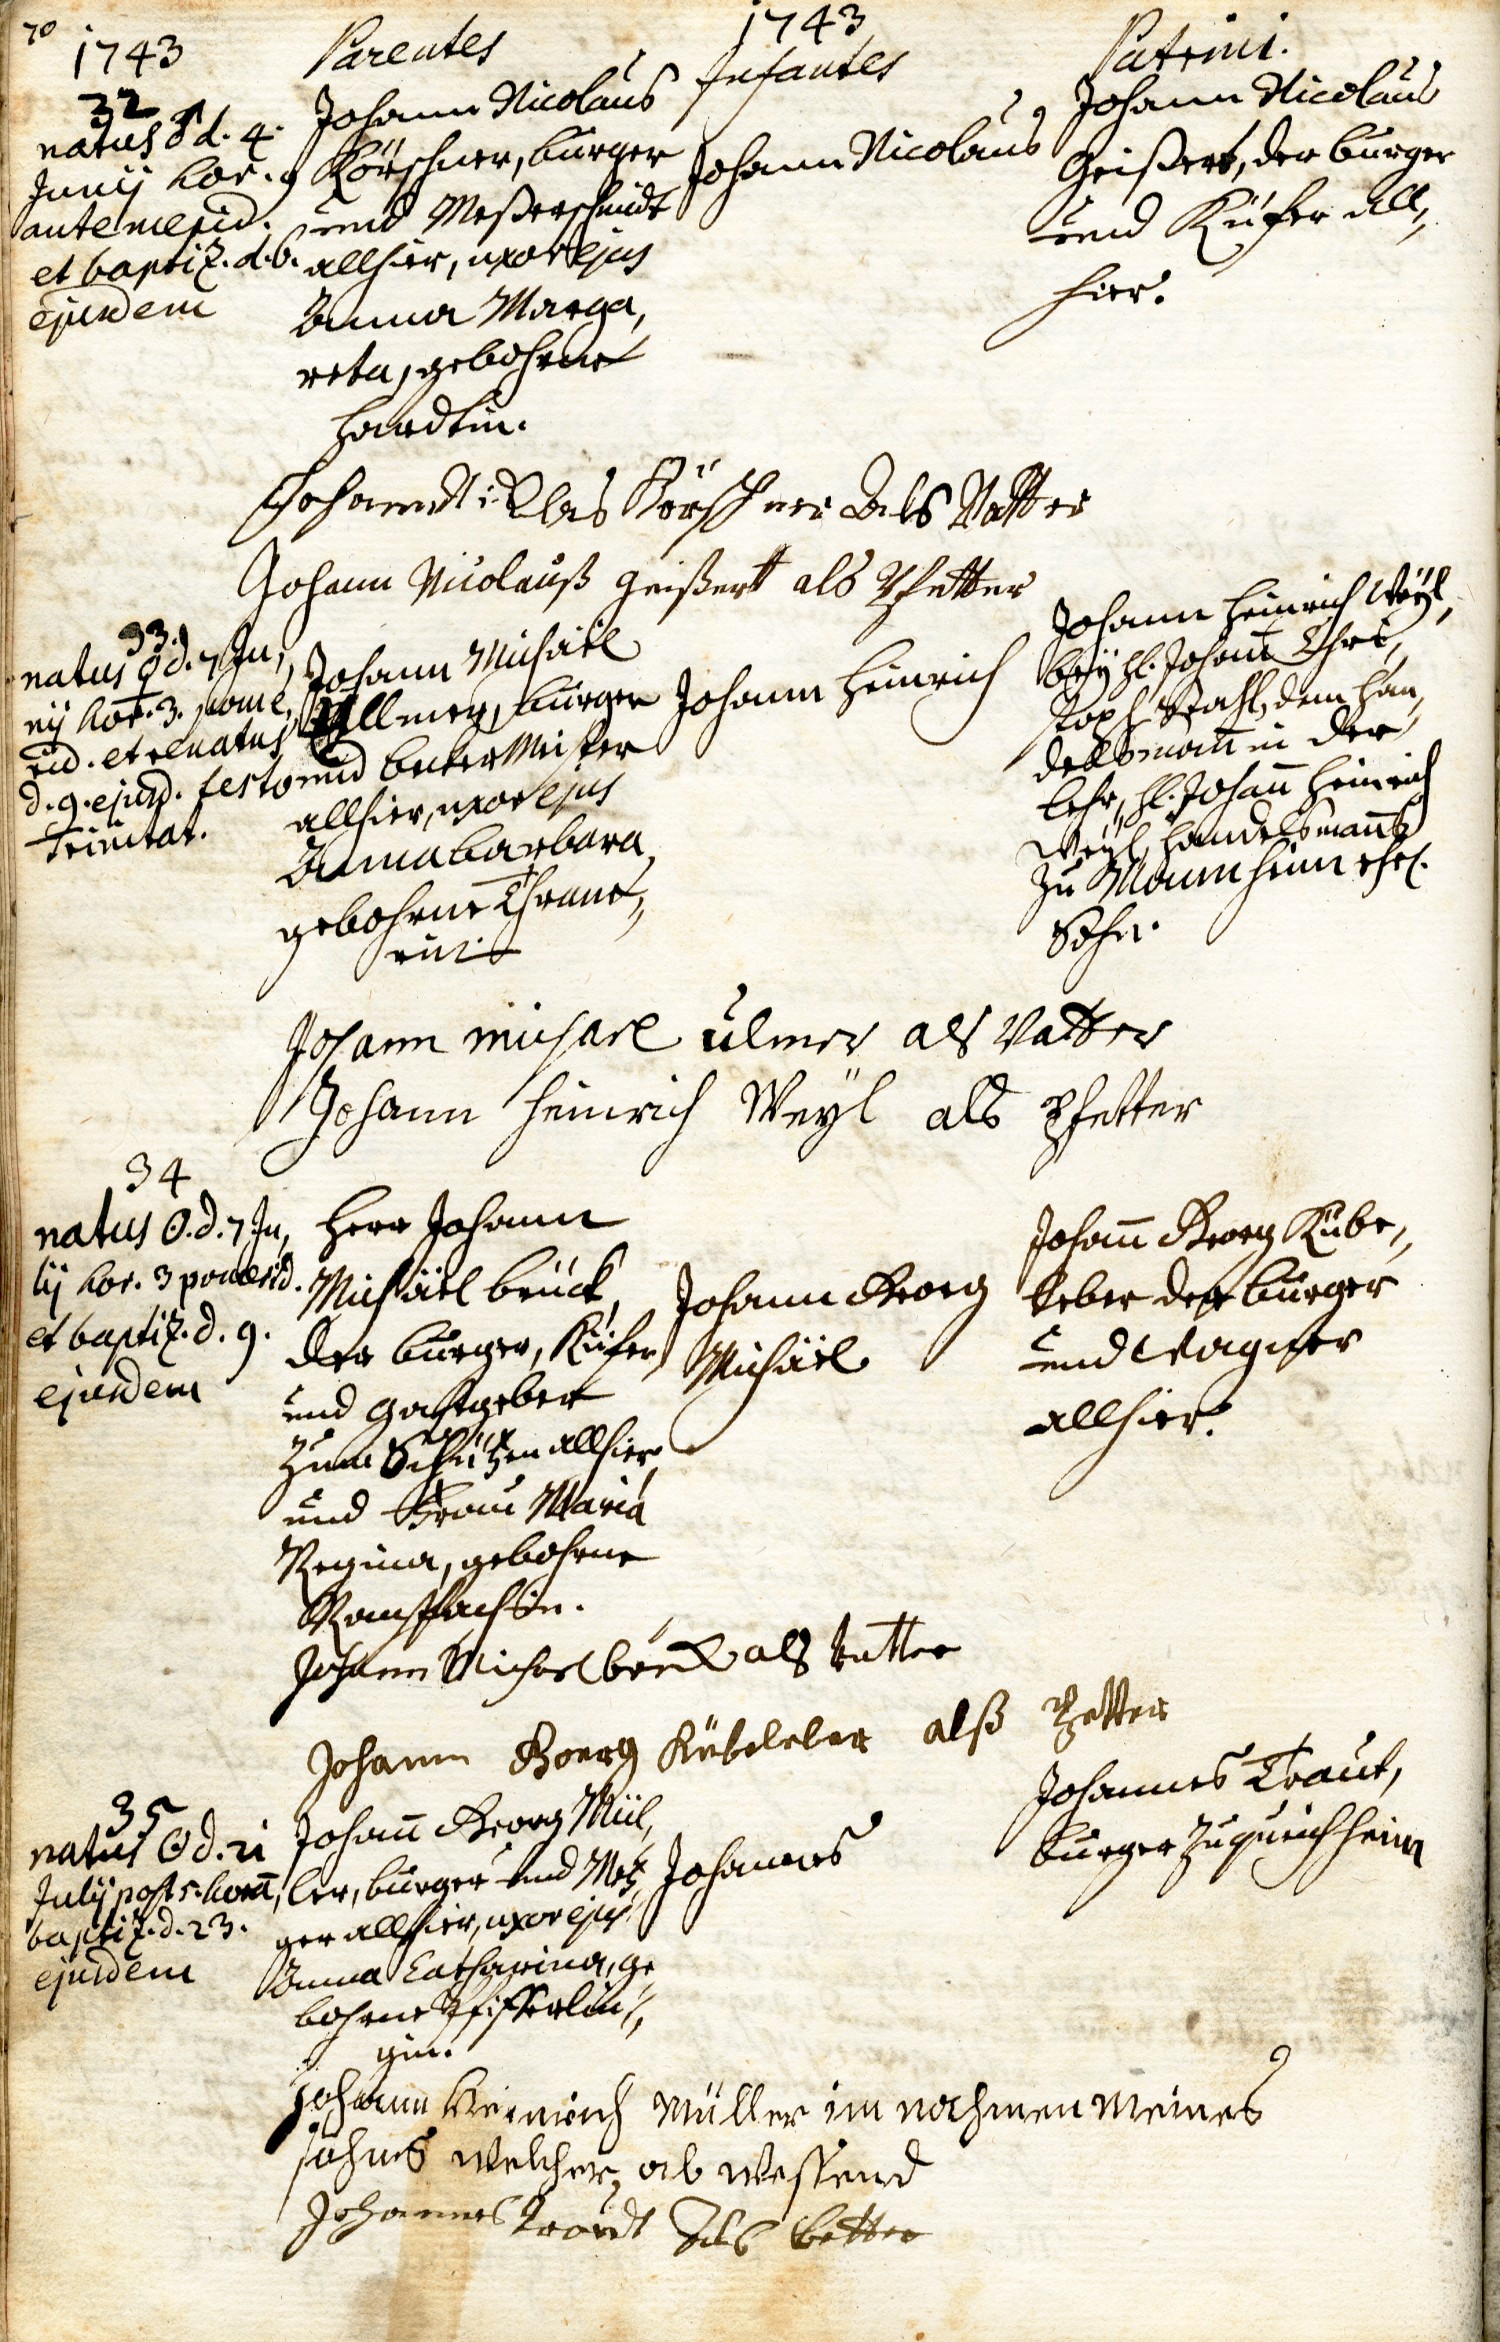 70
1743
1743
Parentes
Infantes
Patrini.
32
natus ♂ d. 4.
Junij hor. 9
antemerid.
et baptiz. d. 6.
ejusdem
Johann Nicolaus
Körschner, burger
und Meßerschmidt
allhier, uxor ejus
Anna Marga,
reta, gebohrne
Hardtin.
Johann Nicolaus
Johann Nicolaus
Geißert, der burger
und Küfer all,
hier.
Johan Niklas Körschner Als Vatter
Johann Nicolauß Geißert als Pfetter
33.
natus ♀ d. 7 Ju,
nij hor. 3. pome,
rid. et renatus
d. 9. ejusd. festo
Trinitat.
Johann Michäel
Ullmer, burger
und becker Meister
allhier, uxor ejus
Anna Barbara,
gebohrne Thrant,
rin.
Johann Heinrich
Johann Heinrich Weyl,
bey H. Johann Chri,
stoph Stahl, dem han,
delsmann in der
Lehr, H. Johann Heinrich
Weyl, handelsmanns
zu Mannheim ehel.
Sohn.
Johann michael ulmer als Vatter
Johann Heinrich Weyl als Pfetter
34
natus ☉. d. 7 Ju,
lij hor. 3 pomerid.
et baptiz. d. 9.
ejusdem
Herr Johann
Michäel brück,
der burger, Küfer
und Gastgeber
zum Schützen allhier
und Frau Maria
Regina, gebohrne
Ramspachin.
Johann Georg
Michäel
Johann Georg Kübe,
leber der burger
und Wagner
allhier.
Johann Michael brück als Vatter
Johann Goerg Kübeleber alß Petter
35
natus ☉ d. 21
Julij post 5. hora,
baptiz. d. 23.
ejusdem
Johann Georg Mül,
ler, burger und Metz,
ger allhier, uxor ejus
Anna Catharina, ge
bohrne Pfifferlin,
gin.
Johannes
Johannes Traut,
burger zu Queichheim
Johann Heinrich Müller im nahmen meines
sohns welcher, ab wessend
Johannes Traudt Als better